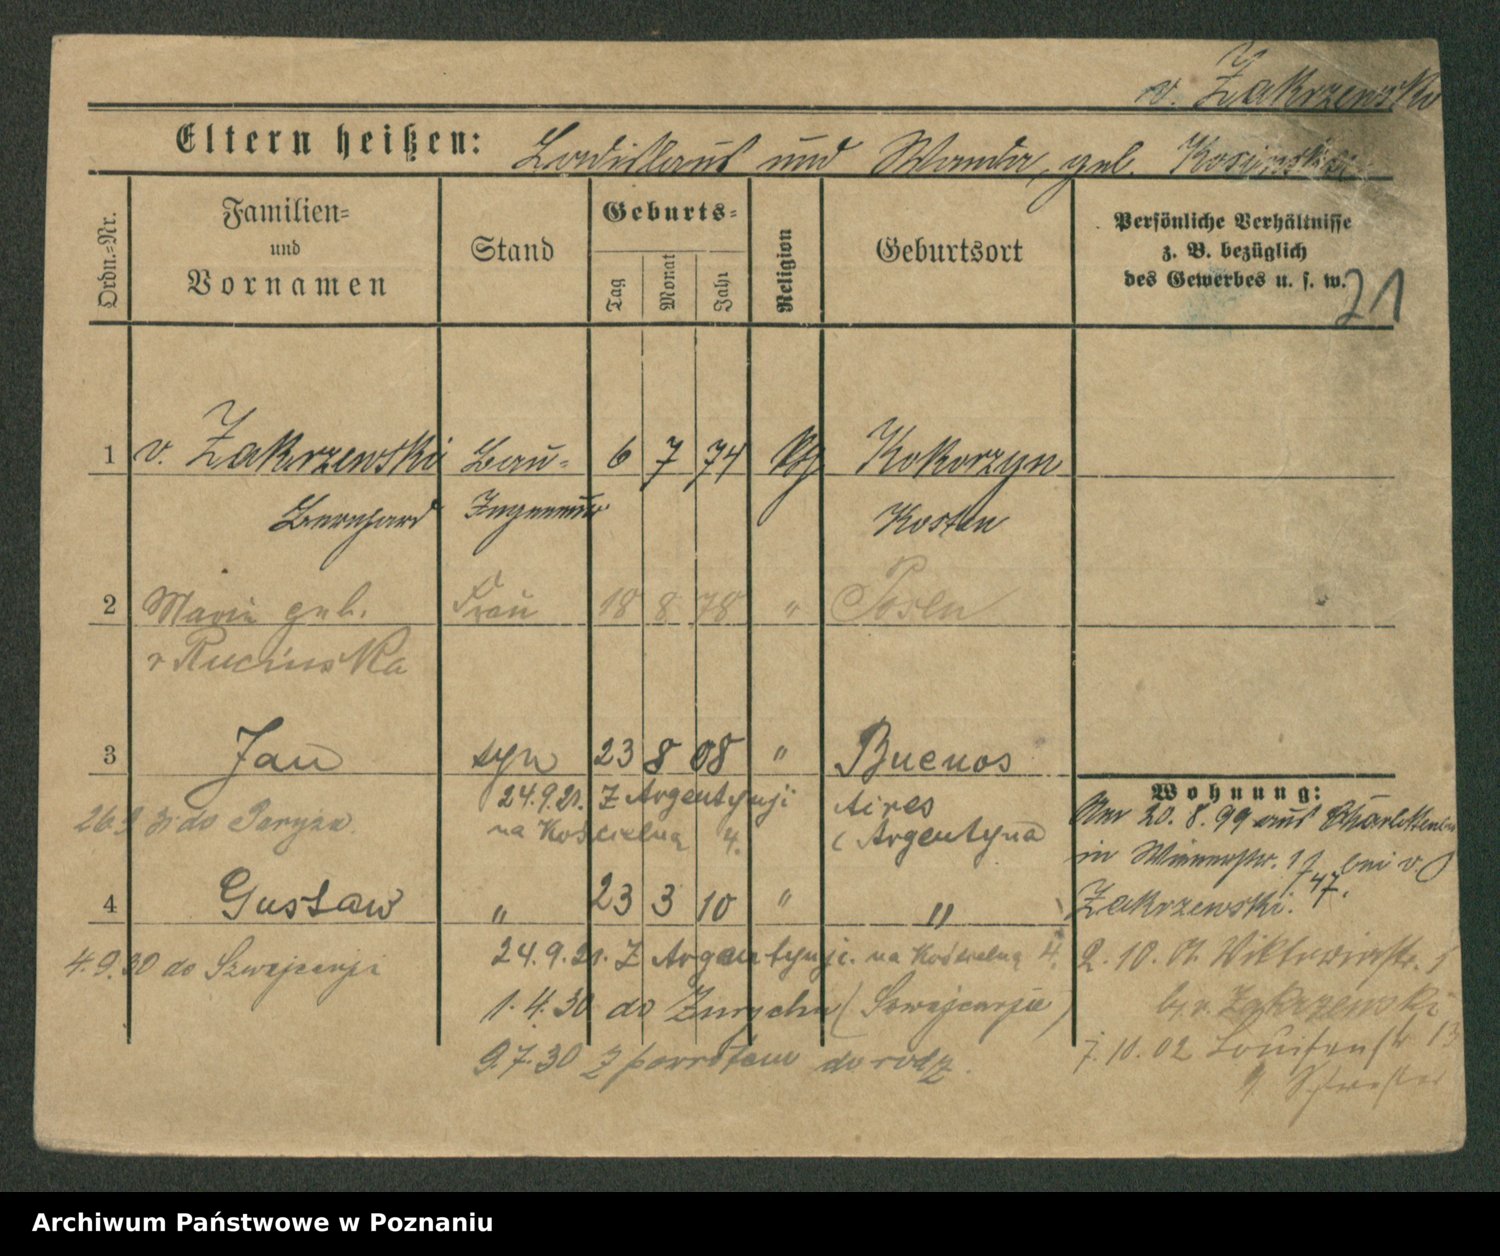 v. Zakrzewski
Eltern heißen: Ladislaus und Wanda, geb. Kosinska
Ordn.-Nr. Familien- und Vornamen Stand Geburts- Tag Monat Jahr Religion Geburtsort Persönliche Verhältnisse z. B. bezüglich des Gewerbes u. s. w.
21
1 v. Zakrzewski Bau- 6 7 74 Kokorzyn
Bernhard Ingenieur Kosten
2 Marie geb. Frau 18 8 78 " Posen
v Rucinska
3 Jan syn 23 8 08 " Buenos
24.9.21. Z Argentynji Aires
26.9 do Paryża. na Kościelną 4. (Argentyna
4 Gustaw " 23 3 10 " "
4.9.30 do Szwajcarji 24.9.21. Z Argentynji. na Kościelną 4.
1.4.30 do Zurychu (Szwajcarja)
9.7.30 z powrotem do rodz.
Wohnung:
20. 8. 99 aus Charlottenb
in bei v.
Zakrzewski. 47.
2. 10. 01. Viktoriastr. 5
b/ v. Zakrzewski
7. 10. 02 Louisenstr 13